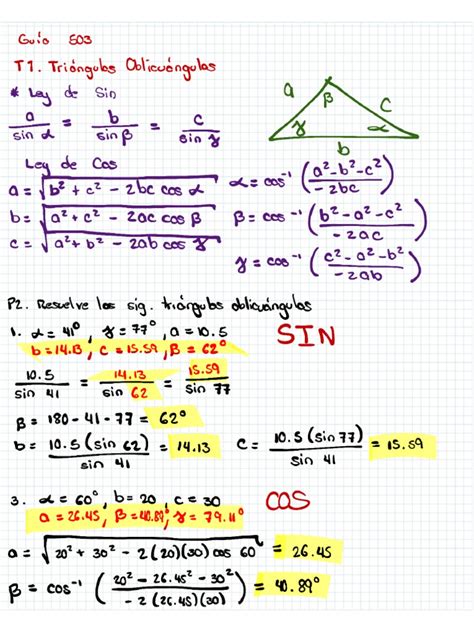 Guía E03
T1. Triángulos Oblicuángulos
* Ley de Sin
a/sin α = b/sin β = c/sin γ
a β c γ α b
Ley de Cos
a = √(b² + c² - 2bc cos α) α = cos⁻¹ ((a²-b²-c²)/(-2bc))
b = √(a² + c² - 2ac cos β) β = cos⁻¹ ((b²-a²-c²)/(-2ac))
c = √(a² + b² - 2ab cos γ) γ = cos⁻¹ ((c²-a²-b²)/(-2ab))
P2. Resuelve los sig. triángulos oblicuángulos
1. α = 41°, γ = 77°, a = 10.5 SIN
b = 14.13, c = 15.59, β = 62°
10.5/sin 41 = 14.13/sin 62 = 15.59/sin 77
β = 180 - 41 - 77 = 62°
b = 10.5 (sin 62)/sin 41 = 14.13 c = 10.5 (sin 77)/sin 41 = 15.59
3. α = 60°, b = 20, c = 30 COS
a = 26.45, β = 40.89°, γ = 79.11°
a = √(20² + 30² - 2(20)(30) cos 60) = 26.45
β = cos⁻¹ ((20² - 26.45² - 30²)/(-2 (26.45)(30))) = 40.89°